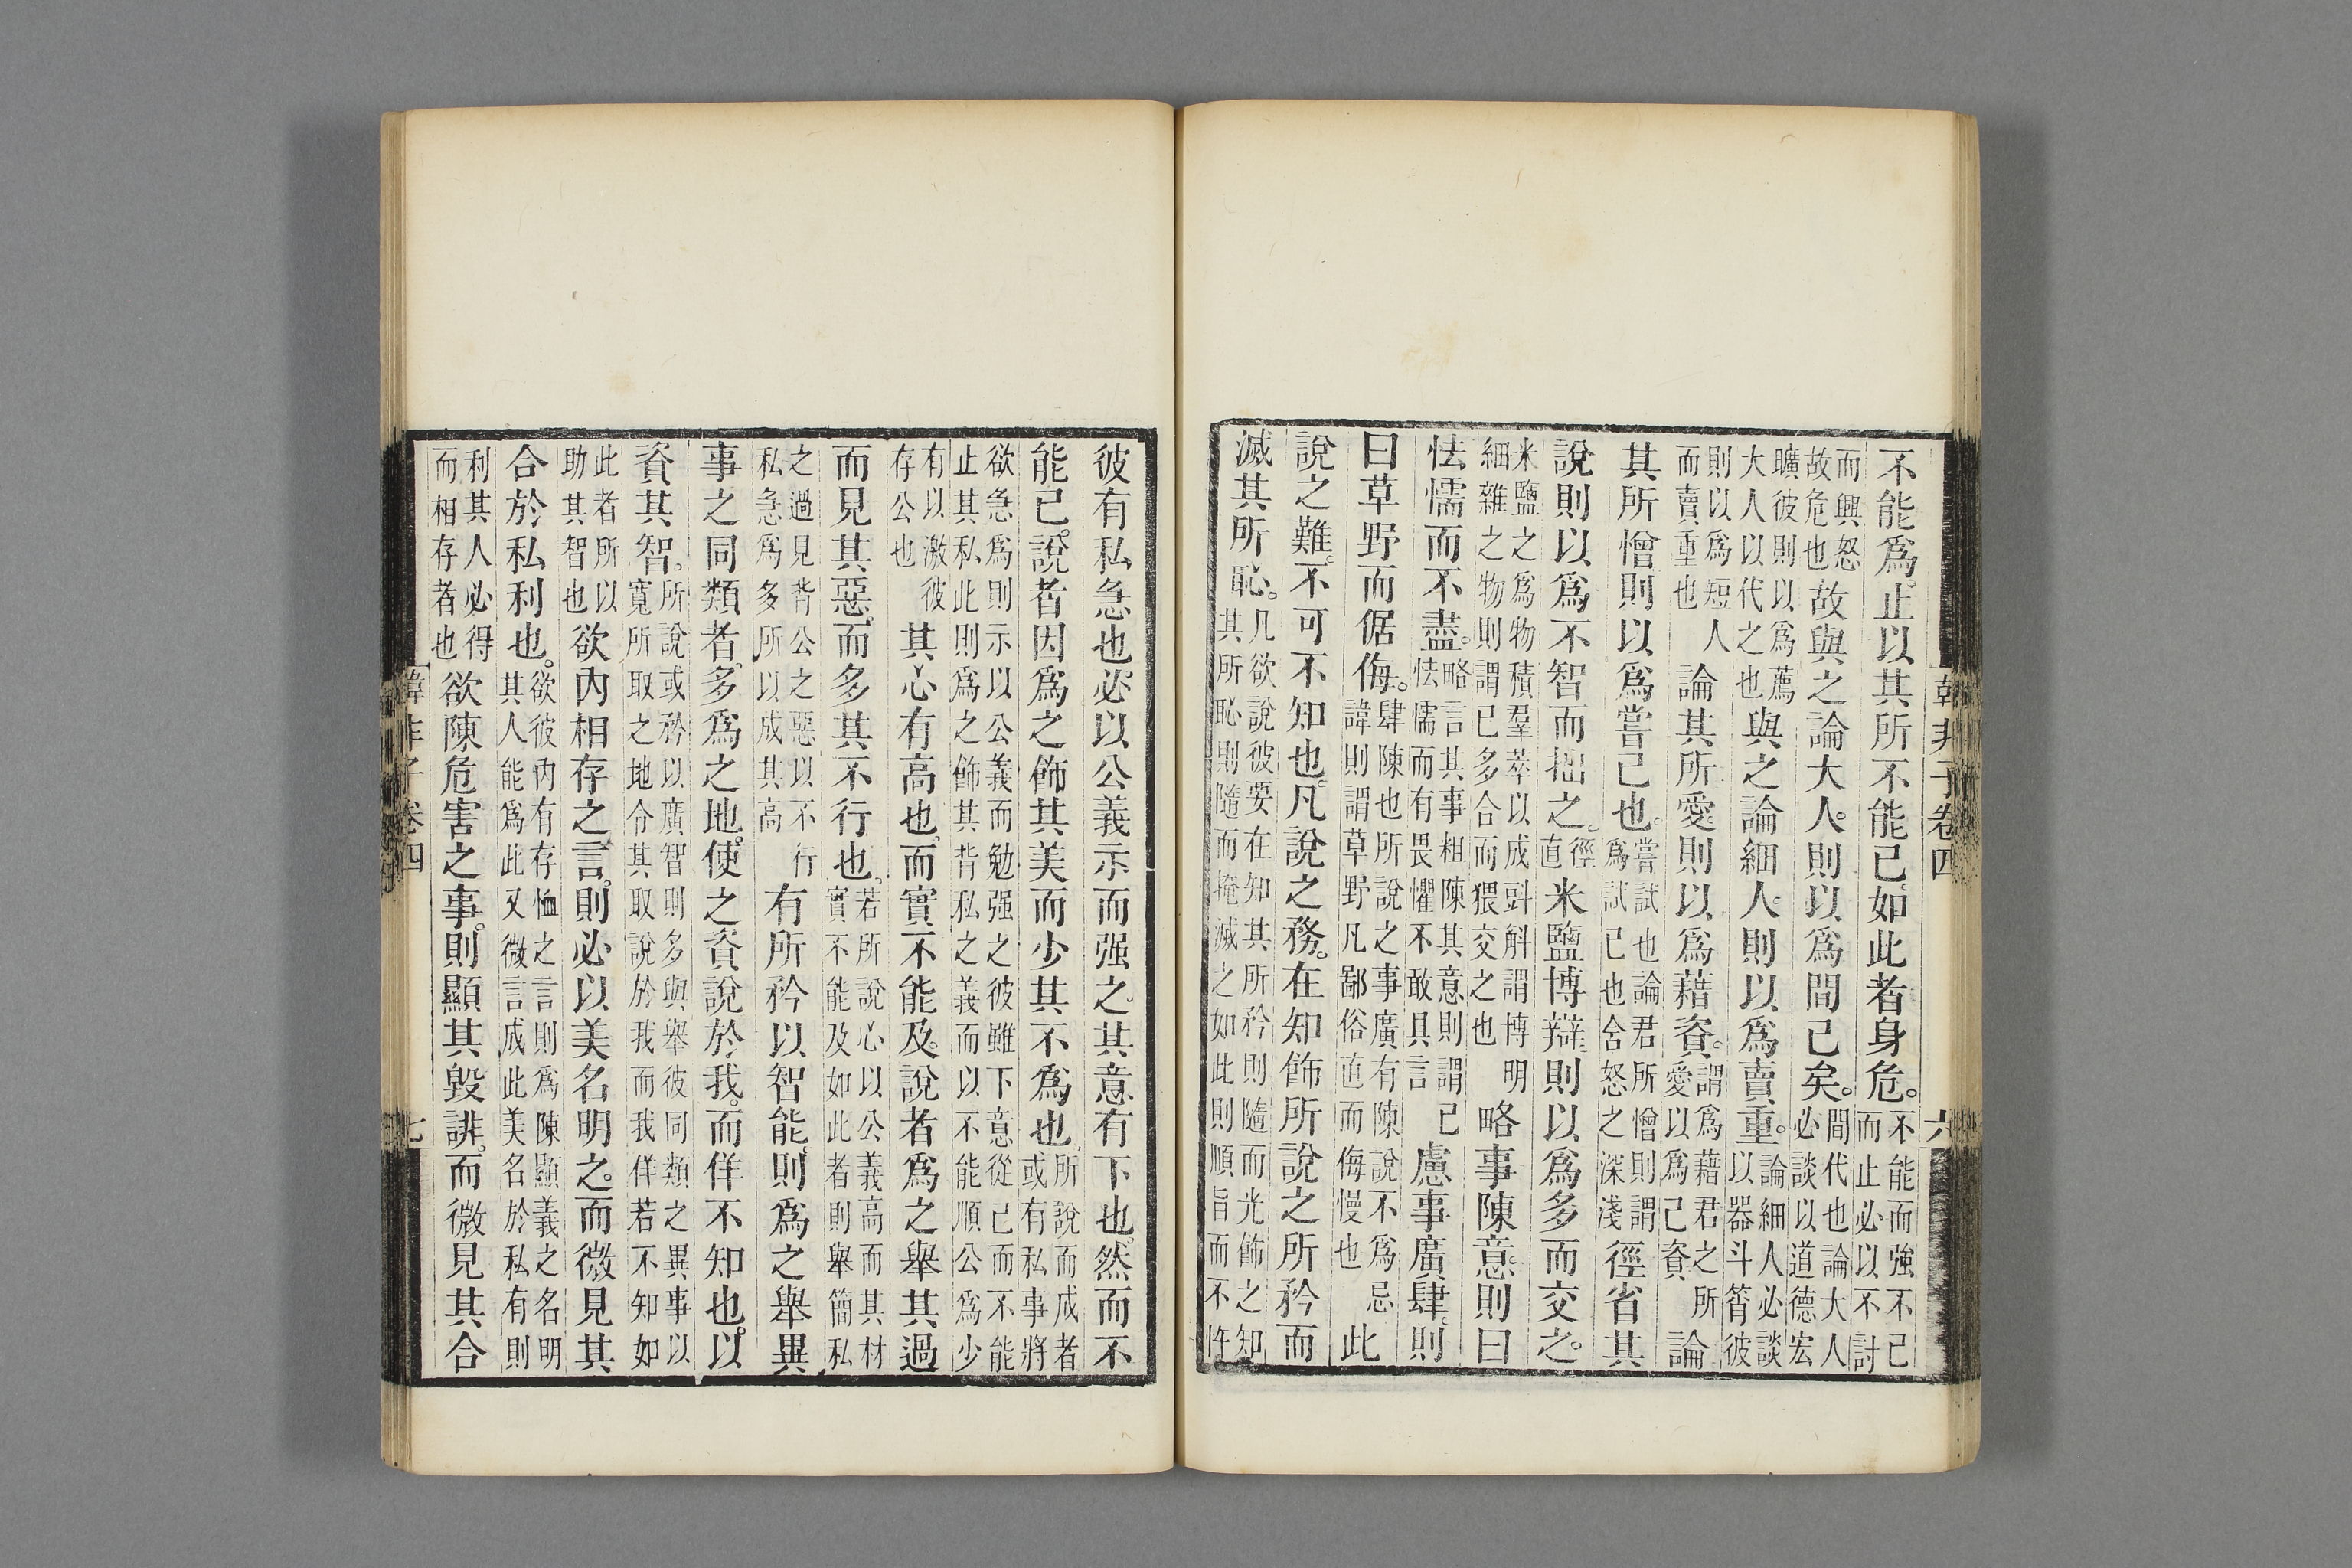 不能爲。止以其所不能已。如此者身危。不能而強不已而止必以不討
而興怒故危也故與之論大人。則以爲間己矣。間代也論大人必談以道德宏
曠彼則以爲薦大人以代之也與之論細人。則以爲賣重。論細人必談以器斗筲彼
則以爲短人而賣重也論其所愛。則以爲藉資。謂爲藉君之所愛以爲己資論
其所憎則以爲嘗己也。嘗試也論君所憎則謂爲試己也含怒之深淺徑省其
說則以爲不智而拙之。徑直米鹽博辯。則以爲多而交之。
米鹽之爲物積羣萃以成㪷斛謂博明細雜之物則謂已多合而猥交之也略事陳意。則曰
怯懦而不盡。略言其事粗陳其意則謂己怯懦而有畏懼不敢具言慮事廣肆。則
曰草野而倨侮。肆陳也所說之事廣有陳說不爲忌諱則謂草野凡鄙俗直而侮慢也此
說之難。不可不知也。凡說之務。在知飾所說之所矜而
滅其所恥。凡欲說彼要在知其所矜則隨而光飾之知其所恥則隨而掩滅之如此則順旨而不忤
韓非子卷四 六
彼有私急也。必以公義示而强之。其意有下也。然而不
能已。說者因爲之飾其美而少其不爲也。所說而成者或有私事將
欲急爲則示以公義而勉强之彼雖下意從己而不能止其私此則爲之飾其背私之義而以不能順公爲少
有以激彼存公也其心有高也。而實不能及。說者爲之舉其過
而見其惡。而多其不行也。若所說心以公義高而其材實不能及如此者則舉簡私
之過見背公之惡以不行私急爲多所以成其高有所矜以智能。則爲之舉異
事之同類者。多爲之地。使之資說於我。而佯不知也。以
資其智。所說或矜以廣智則多與舉彼同類之異事以寬所取之地令其取說於我而我佯若不知如
此者所以助其智也欲內相存之言。則必以美名明之。而微見其
合於私利也。欲彼內有存恤之言則爲陳顯義之名明其人能爲此又微言成此美名於私有則
利其人必得而相存者也欲陳危害之事。則顯其毀誹。而微見其合
韓非子卷四 七